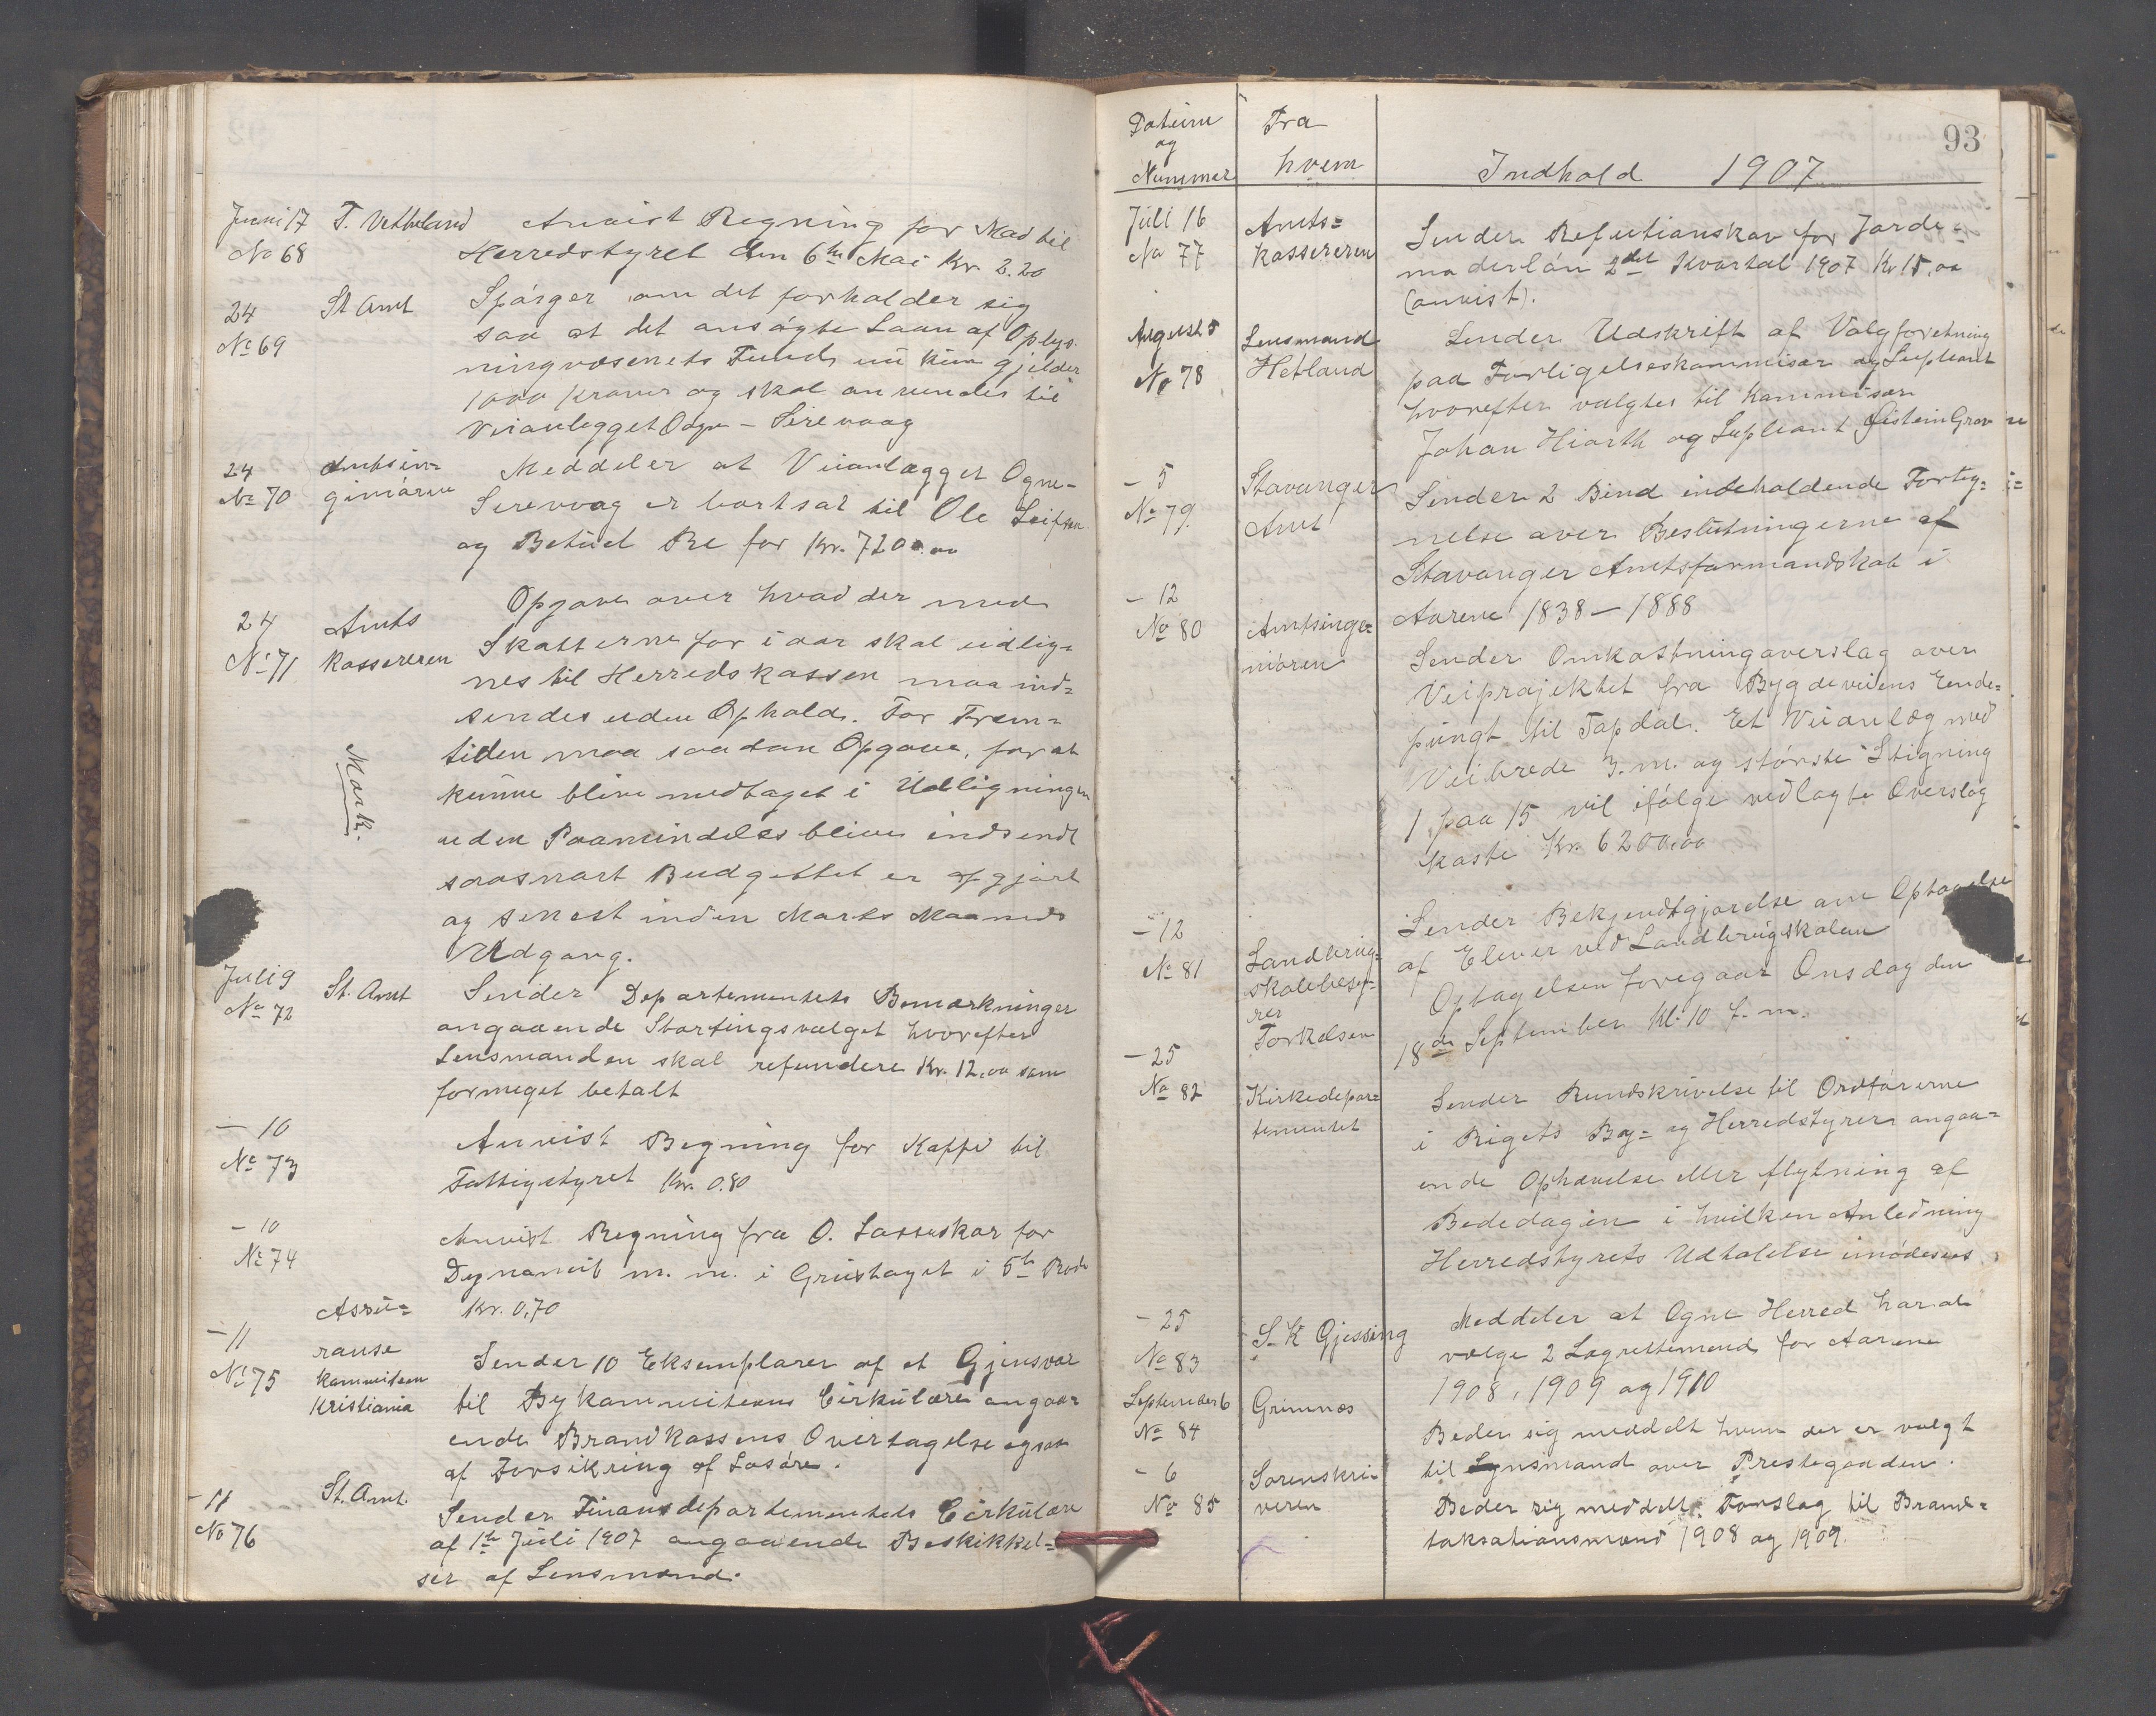 Juni 17 T. Vetheland Anvist Regning for Mad til
No 68 Herredstyret den 6te Mai Kr. 2.20
24 St Amt Spørger om det forholder sig
No 69 saa at det ansøgte Laan af Oplys-
ningvæsenets Fund nu kun gjelder
1000 Kroner og skal anvendes til
Veianlegget Ogne - Sirevaag
24 Amtsin= Meddeler at Veianlægget Ogne-
No 70 geniøren Sirevaag er bortsat til Ole Leifsen
og Betuel Re for Kr. 7200.00
Opgave over hvad der med
24 Amts Skatterne for i aar skal udlig=
No 71 kassereren nes til Herredskassen maa ind=
sendes uden Ophold. For Frem=
tiden maa saadan Opgave, for at
Mærk. kunne blive medtaget i Udligningen
uden Paamindelse blive indsendt
saasnart Budgettet er afgjort
og senest inden Marts Maaneds
Udgang.
Juli 9 St. Amt Sender Departementets Bemærkninger
No 72 angaaende Stortingsvalget hvorefter
Lensmanden skal refundere Kr. 12,00 som
formeget betalt
- 10 Anvist Regning for Kaffe til
No 73 Fattigstyret Kr. 0.80
- 10 Anvist Regning fra O. Lasseskar for
No 74 Dynamit m. m. i Grustaget i 5te Rode
Kr. 0,70
- 11 Assu=
No 75 ranse
kommiteen
Kristiania
Sender 10 Eksemplarer af et Gjensvar
til Bykommiteens Cirkulære angaa=
ende Brandkassens Overtagelse ogsaa
af Forsikring af Løsøre.
- 11 St. Amt. Sender Finansdepartementets Cirkulære
No 76 af 1te Juli 1907 angaaende Beskikkel=
ser af Lensmænd.
93
Datum Fra
og
Nummer hvem Indhold 1907
Juli 16 Amts= Sender Refutionskrav for Jorde=
No 77 kassereren moderløn 2det Kvartal 1907 Kr 15,00
(anvist).
August 5 Lensmand Sender Udskrift af Valgforretning
No 78 Hetland paa Forligelseskommisær og Supleant
hvorefter valgtes til Kommisær
Johan Hiorth og Supleant Øistein Grov
- 5 Stavanger Sender 2 Bind indeholdende Forteg=
No 79. Amt nelse over Beslutningerne af
Stavanger Amtsformandskab i
Aarene 1838 - 1888
- 12
No 80 Amtsinge=
niøren
Sender Omkostningoverslag over
Veiprojektet fra Bygdeveiens Ende=
pungt til Tapdal. Et Veianlæg med
Veibrede 3. m. og største Stigning
1 paa 15 vil ifølge vedlagte Overslag
koste Kr. 6200.00
- 12 Sender Bekjendtgjørelse om Optagelse
No 81 Landbrug= af Elever ved Landbrugskolen
skolebesty=
rer
Torkelsen
Optagelsen foregaar Onsdag den
18de September Kl. 10 f. m.
- 25
No 82 Kirkedepar=
tementet
Sender Rundskrivelse til Ordførerne
i Rigets By= og Herredstyrer angaa=
ende Ophævelse eller flytning af
Bededagen i hvilken Anledning
Herredstyrets Udtalelse imødesees
- 25 S. K Gjessing Meddeler at Ogne Herred har at
No 83 vælge 2 Lagrettemænd for Aarene
1908, 1909 og 1910
September 6 Grimnæs Beder sig meddelt hvem der er valgt
No 84 til Synsmand over Prestegaarden.
- 6 Sorenskri= Beder sig meddelt Forslag til Brand=
No 85 veren taksationsmænd 1908 og 1909.